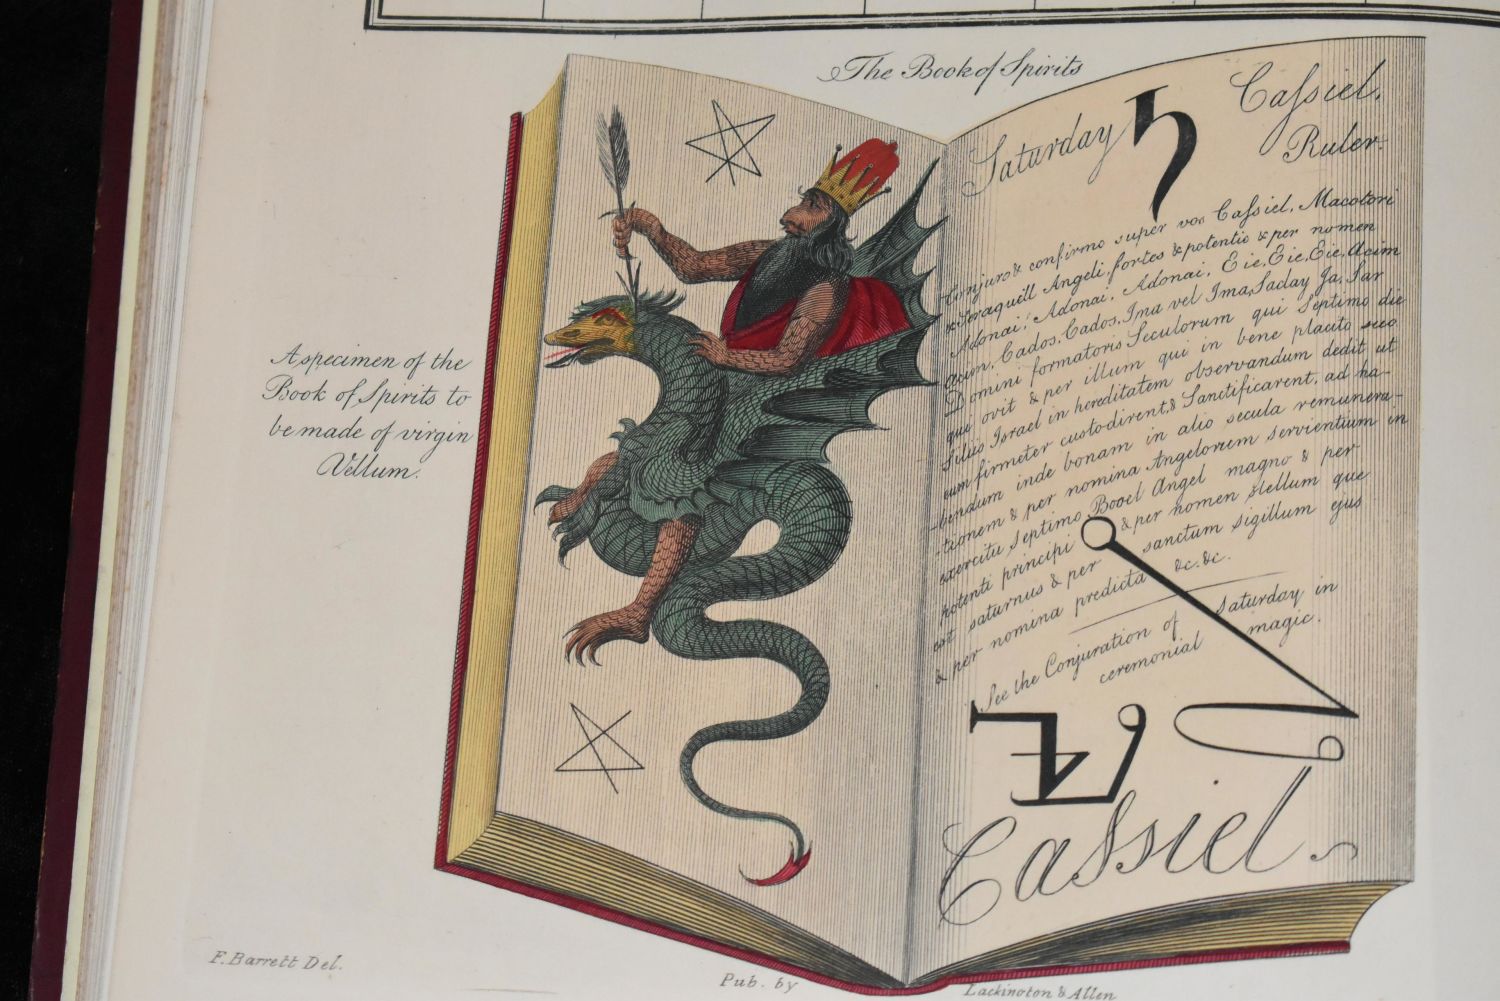 The Book of Spirits
A specimen of the
Book of Spirits to
be made of virgin
Vellum.
Saturday ♄ Cassiel.
Ruler.
Conjuro & confirmo super vos Cassiel, Macotori
& Seraquiel Angeli fortes & potentio & per nomen
Adonai, Adonai, Adonai, Eie, Eie, Eie, Acim
Acim, Cados, Cados, Ima vel Ima, Saday Ja, Sar
Domini formatoris Seculorum qui Septimo die
qui ovit & per illum qui in bene placito suo
filiis Israel in hereditatem observandum dedit ut
eum firmeter custodirent, & Sanctificarent, ad ha-
-bendum inde bonam in alio secula remunera-
-tionem & per nomina Angelorem servientium in
exercitu septimo Booel Angel magno & per
potenti principi & per homen stellum que
est saturnus & per sanctum sigillum ejus
& per nomina predicta &c. &c.
See the Conjuration of Saturday in
ceremonial magic.
Cassiel.
F. Barrett Del.
Pub. by Lackington & Allen